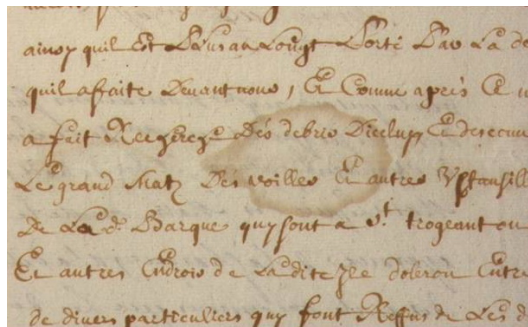 ainsy quil est plus au Long porté par La de
quil a faite devant nous, Et Comme après Ce n
a fait Recherche Des debris D'iceluy Et des
Le grand Matz Des voilles Et autres Ustansill
De La d.^e Barque quy sont a S.^t trogeant ou
Et autres Endrois de La dite Isle doleron Entre
de divers particuliers quy font Reffus de Les